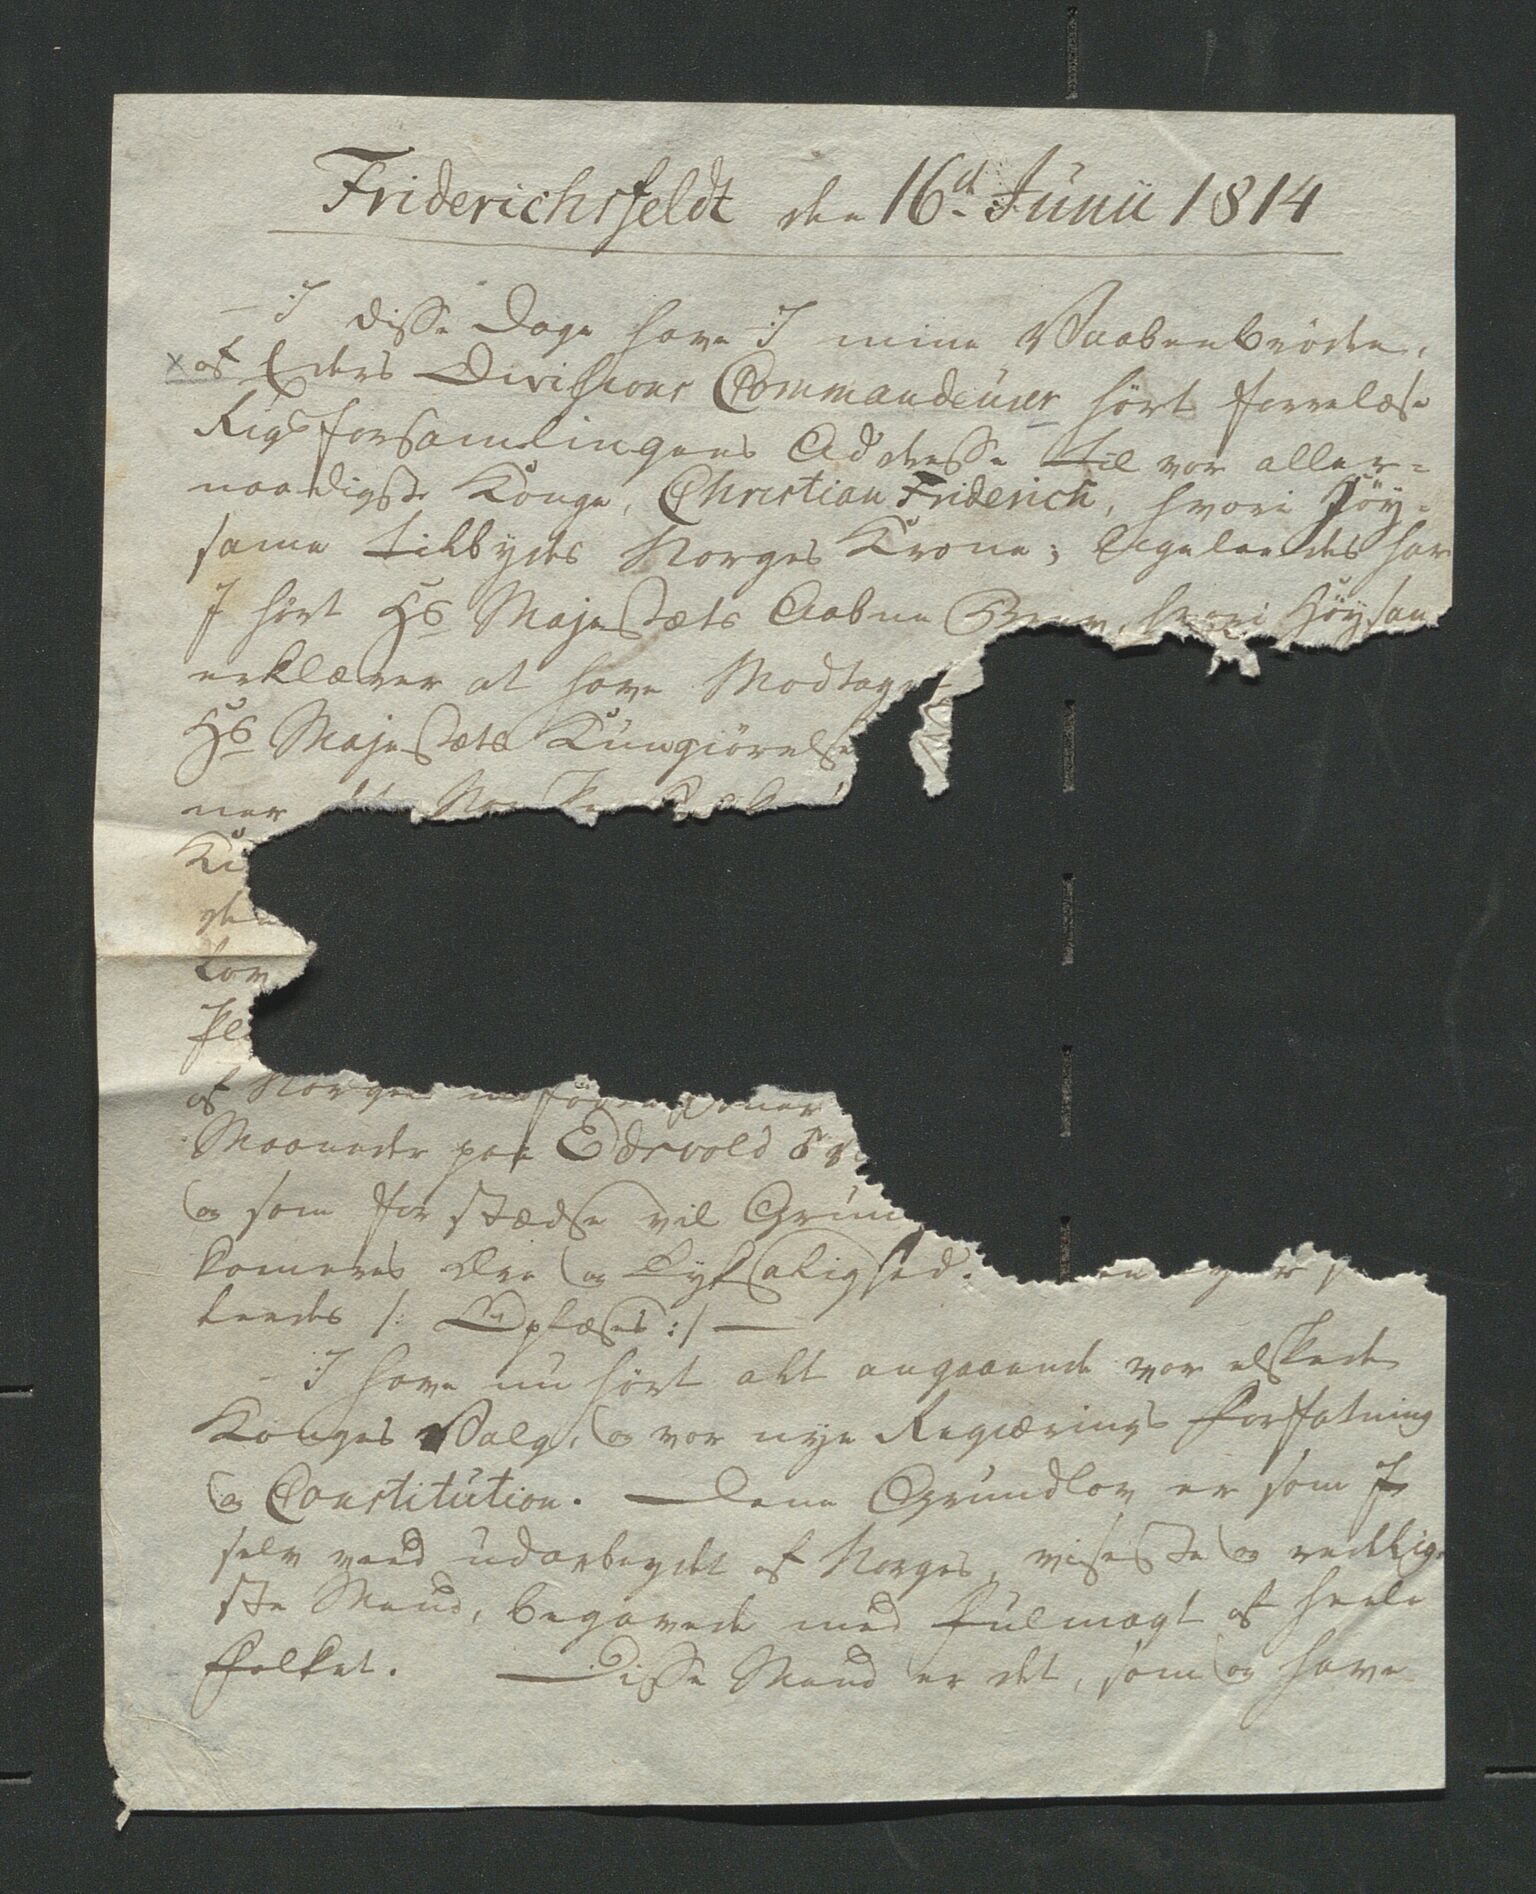 Friderichsfeldt den 16d Junii 1814
I disse Dage have I mine Vaabenbrödre,
af Eders Divisions Commandeurer hört forrelæse
Rigsforsamlingens Addresse til vor aller-
naadigste Konge, Christian Friderich, hvori Höy-
samme tilbydes Norges Krone; ligeleedes har
I hört Hs Majestæts Aabne Brev, hvori Höysam
erklærer at have Modtaget
Hs Majestæts Kungiörelse
ner det Norske
Ki
lov
af Norges
Maaneder paa Edsvold
og som for stædse vil Grun
komeres Ære og Lyksalighed.
leedes /: Oplæses :/
I have nu hört alt angaaende vor elskede
Konges Valg, og vor nye Regiærings Forfatning
og Constitution. Denne Grundlov er som I
selv veed udarbeydet af Norges viseste og redelig-
ste Mænd, begavede med Fulmagt af heele
Folket. Disse Mænd er det, som og have